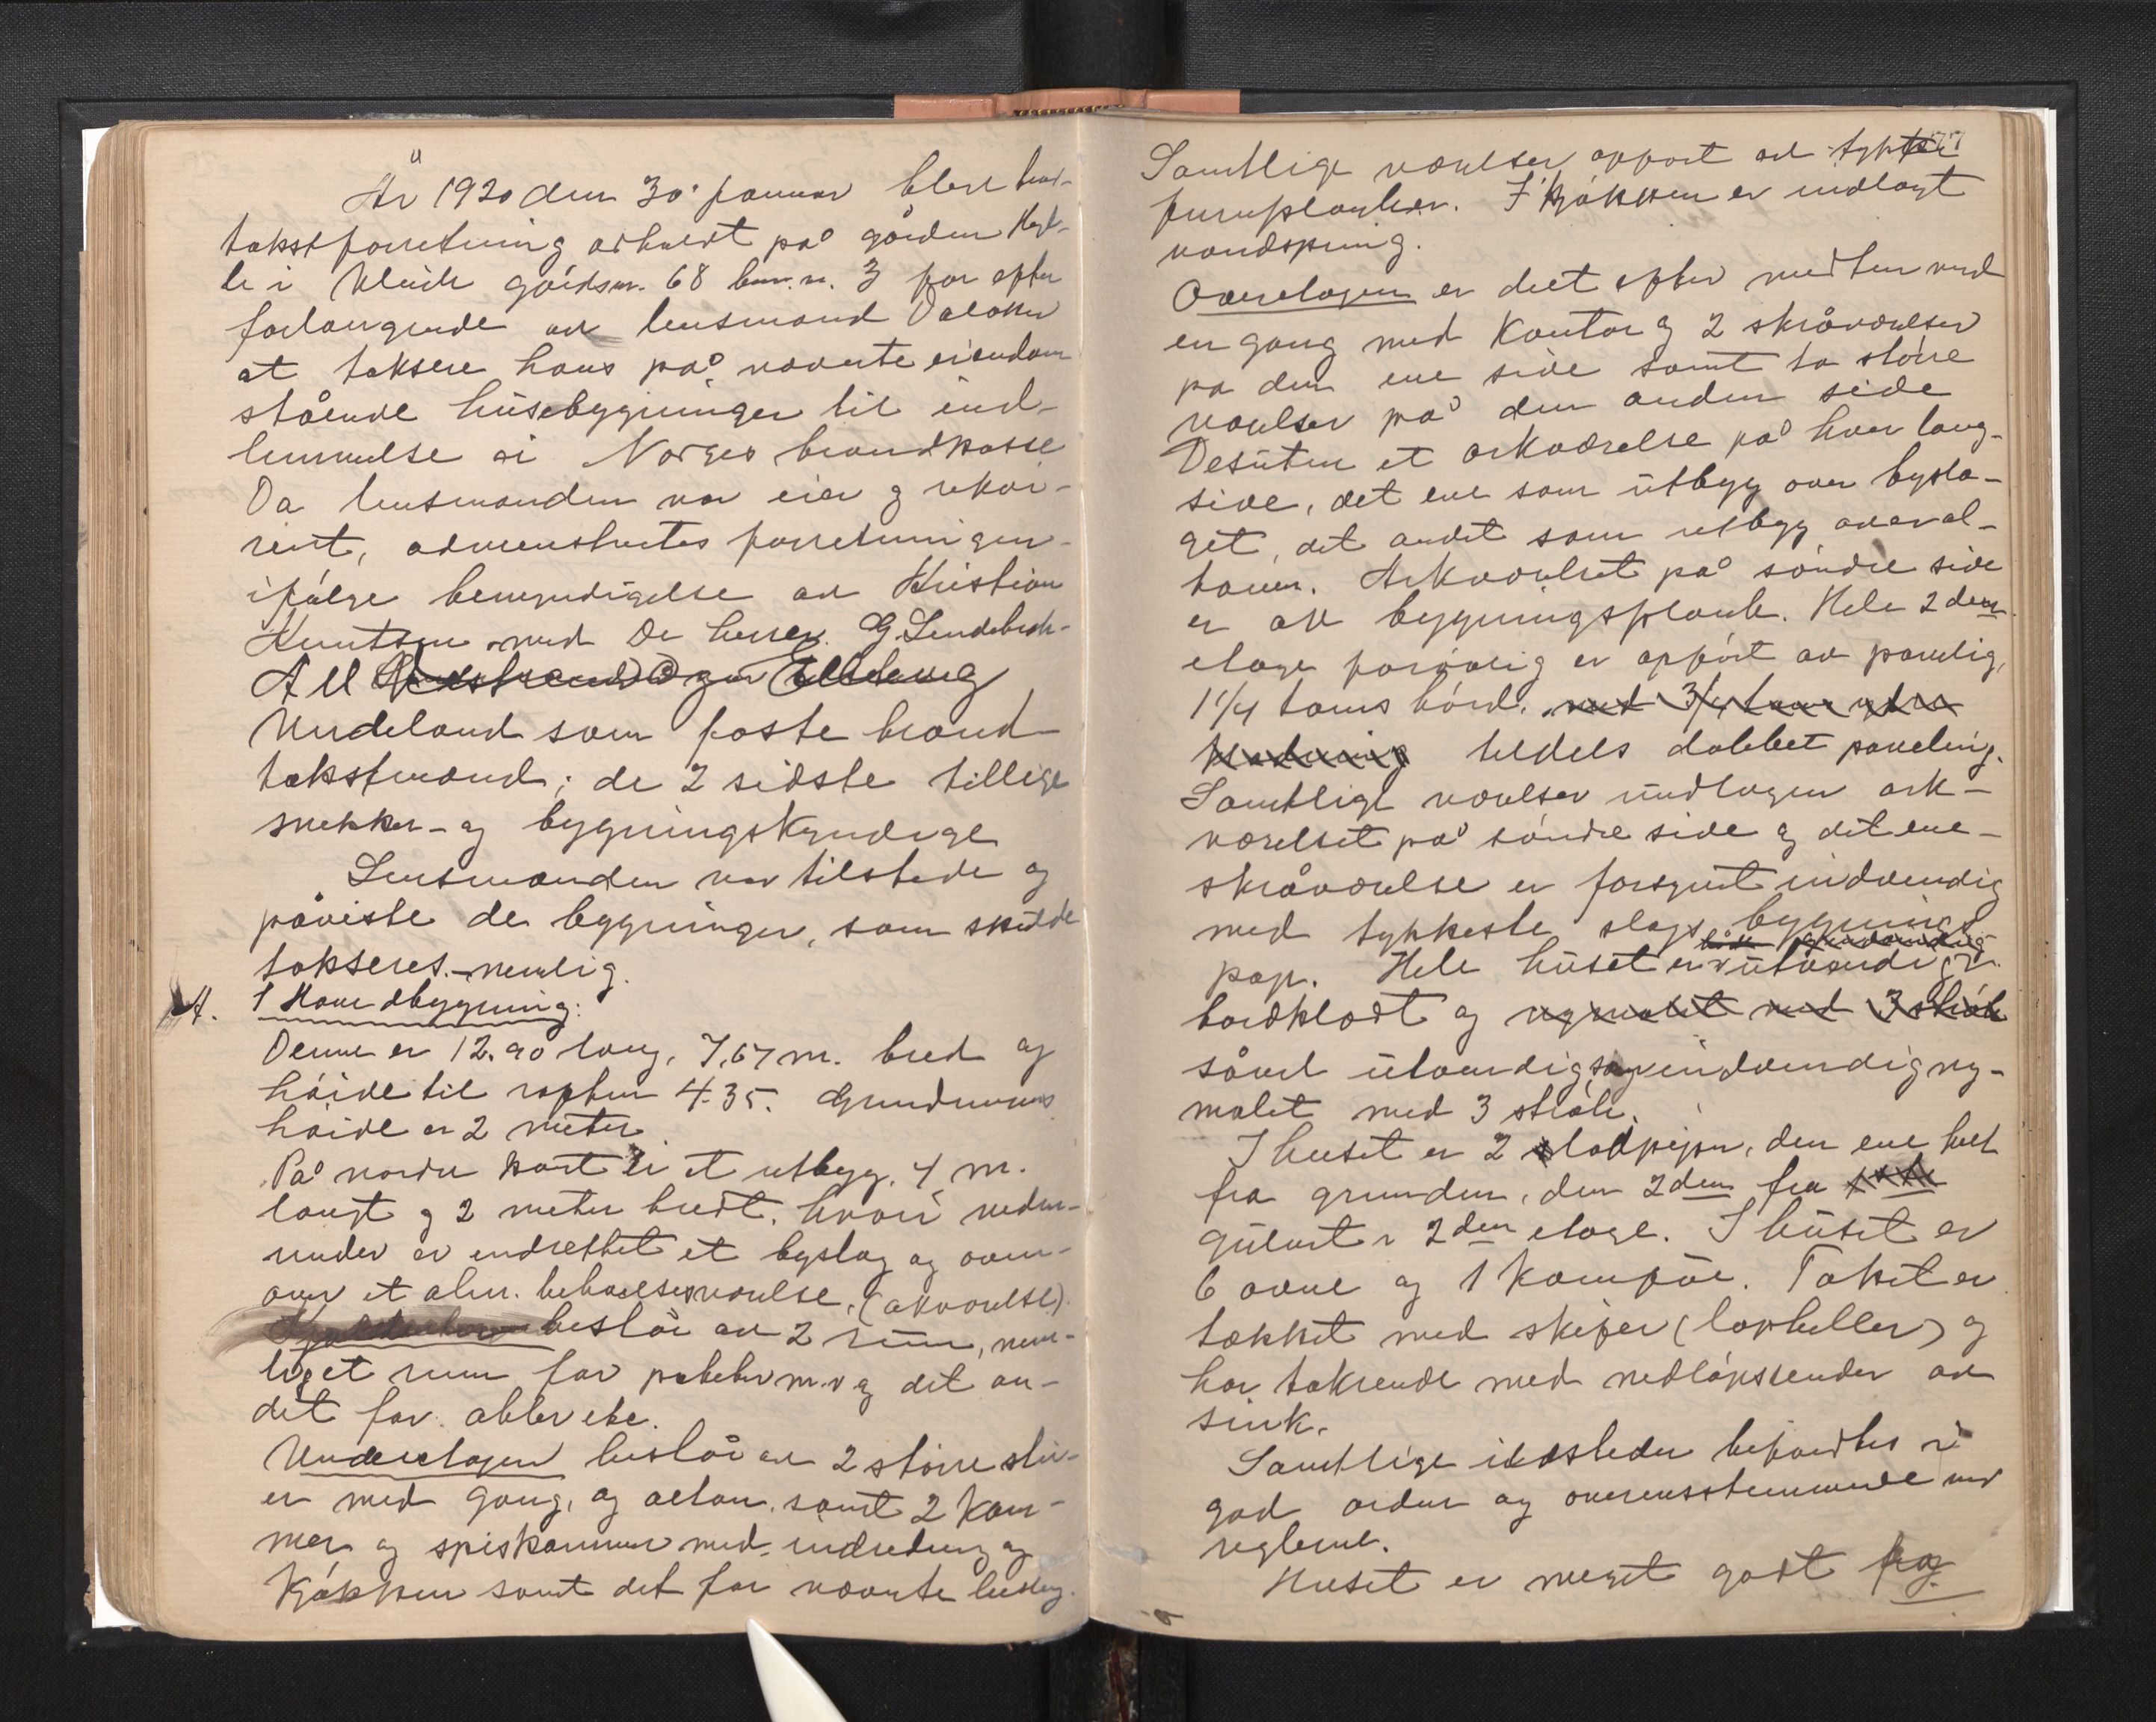 År 1920 den 30 januar blev brand-
takstforretning avholdt på gården
le i gårdsnr. 68 br.nr. 3 for efter
forlangende av lensmand
at taksere hans på nævnte eiendom
stående husebygninger til ind-
lemmelse i Norges brandkasse
Da lensmanden var eier og rekvi-
rent, administrertes forretningen
ifølge bemyndigelse av Kristian
Knutsen med De herrer G
A M
Undeland som faste brand-
takstmænd; de 2 sidste tillige
snekker- og bygningskyndige
Lensmanden var tilstede og
påviste de bygninger, som skulde
takseres. nemlig.
A. 1 Hovedbygning:
Denne er 12.90 lang, 7,67 m. bred og
høide til røsten 4.35. Grundmurens
høide er 2 meter
På nordre kant er et utbygg. 4 m.
langt og 2 meter bredt. hvori neden-
under er indrettet et byslag og oven-
over et alm. beboelsesværelse. (arkværelse).
Kjælderen består av 2 rum, nem-
lig et rum for poteter m.v og det an-
det for. æbler etc.
Underetagen består av 2 større stu-
er med gang, og altan. samt 2 kam-
mer og spiskammer med indredning og
Kjøkken samt det før nævnte byslag.
77
Samtlige værelser opført av tykke
furuplanker. I kjøkken er indlagt
vandspring.
Overetagen er delt efter midten med
en gang med Kontor og 2 skråværelser
på den ene side samt to større
værelser på den anden side
Desuten et arkværelse på hver lang-
side, det ene som utbygg over bysla-
get, det andet som utbygg over al-
tanen. Arkværelset på søndre side
er av bygningsplank. Hele 2den
etage forøvrig er opført av panelig,
1 1/4 toms bord. med 3/4 toms ydre
klædning tildels dobbet paneling.
Samtlige værelser undtagen ark-
værelset på søndre side og det ene
skråværelse er forsynt indvendig
med tykkeste slags bygnings
pap. Hele huset er utvendig
bordklædt og nymalet med 3 strøk
såvel utvendig som indvendig ny-
malet med 3 strøk.
I huset er 2 stadpiper, den ene helt
fra grunden, den 2den fra 1ste
gulvet i 2den etage. I huset er
6 ovne og 1 komfur. Taket er
tækket med skifer (lapheller) og
har takrende med nedløpsrender av
sink.
Samtlige ildsteder befandtes i
god orden og overensstemmende med
reglerne.
Huset er meget godt